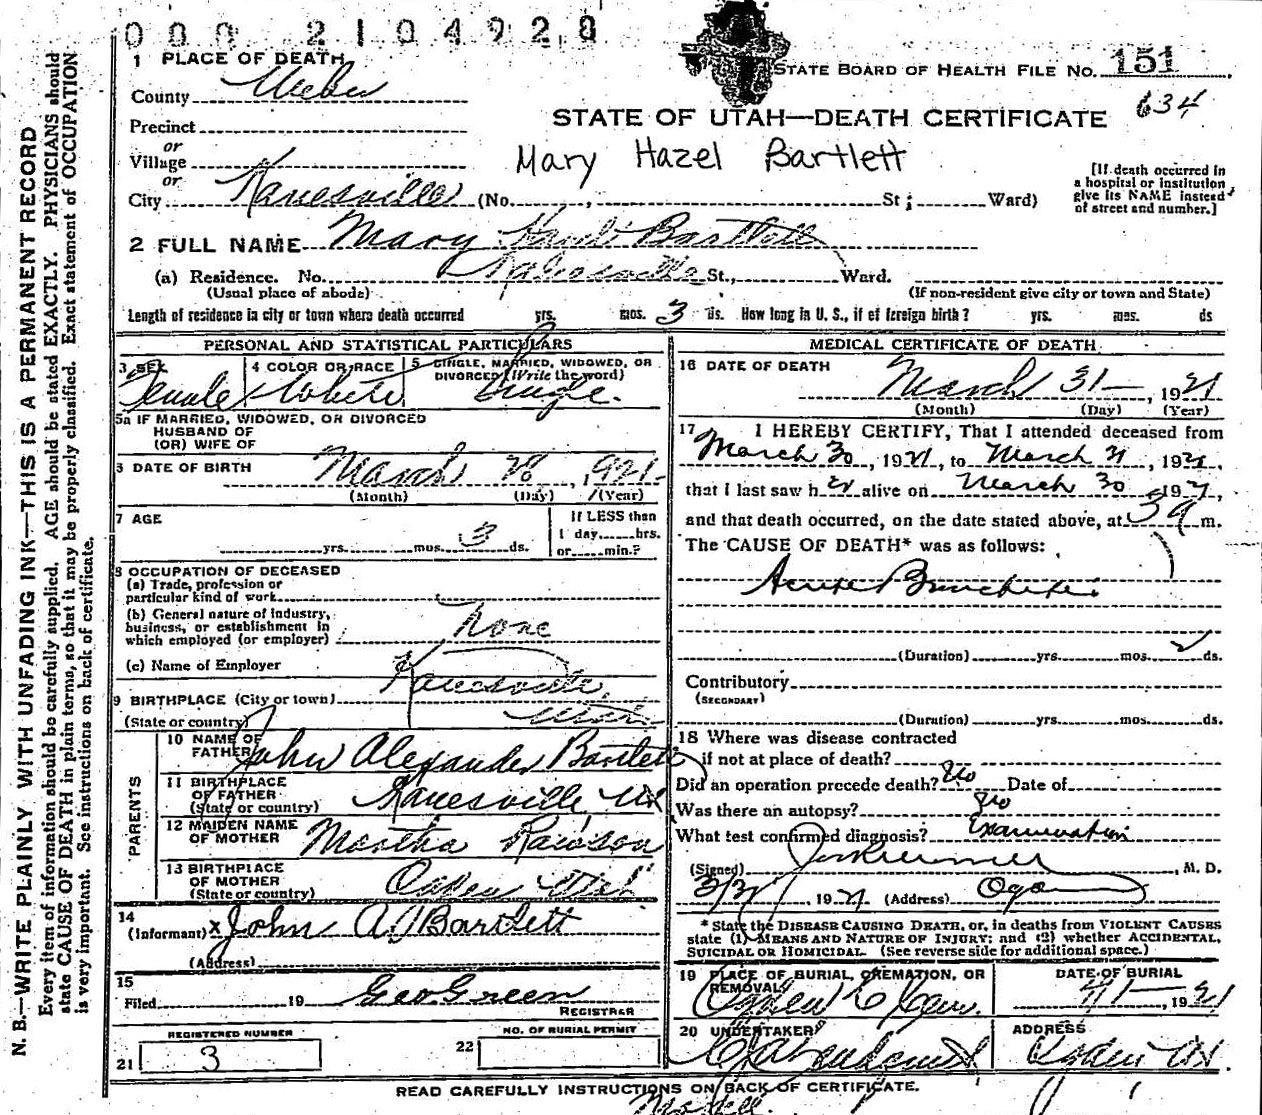 000 2104928
1 PLACE OF DEATH
STATE BOARD OF HEALTH FILE NO. 151
County Weber
634
STATE OF UTAH—DEATH CERTIFICATE
Precinct
or
Village
Mary Hazel Bartlett
or
City Kanesville (No. , St ; Ward)
[If death occurred in
a hospital or institution
give its NAME instead
of street and number.]
2 FULL NAME Mary Hazel Bartlett
(a) Residence. No. Kanesville St., Ward.
(Usual place of abode) (If non-resident give city or town and State)
Length of residence in city or town where death occurred yrs. mos. 3 ds. How long in U. S., if of foreign birth? yrs. mos. ds
PERSONAL AND STATISTICAL PARTICULARS
3 SEX
Female
4 COLOR OR RACE
White
5 SINGLE, MARRIED, WIDOWED, OR
DIVORCED (Write the word)
Single.
5a IF MARRIED, WIDOWED, OR DIVORCED
HUSBAND OF
(OR) WIFE OF
6 DATE OF BIRTH March 28, 1921
(Month) (Day) (Year)
7 AGE
yrs. mos. 3 ds.
If LESS than
1 day, hrs.
or min.?
8 OCCUPATION OF DECEASED
(a) Trade, profession or
particular kind of work
(b) General nature of industry,
business, or establishment in
which employed (or employer) None
(c) Name of Employer
9 BIRTHPLACE (City or town) Kanesville,
(State or country) Utah
PARENTS
10 NAME OF
FATHER John Alexander Bartlett
11 BIRTHPLACE
OF FATHER
(State or country) Kanesville, Ut
12 MAIDEN NAME
OF MOTHER Martha Rawson
13 BIRTHPLACE
OF MOTHER
(State or country) Ogden Utah
14
(Informant) x John A. Bartlett
(Address)
15
Filed 19 Geo Green
REGISTRAR
REGISTERED NUMBER
21 3
NO. OF BURIAL PERMIT
22
MEDICAL CERTIFICATE OF DEATH
16 DATE OF DEATH
March 31—, 1921
(Month) (Day) (Year)
17 I HEREBY CERTIFY, That I attended deceased from
March 30, 1921, to March 31, 1921,
that I last saw her alive on March 30, 1921,
and that death occurred, on the date stated above, at 5 a m.
The CAUSE OF DEATH* was as follows:
Acute Bronchitis
(Duration) yrs. mos. ds.
Contributory
(SECONDARY)
(Duration) yrs. mos. ds.
18 Where was disease contracted
if not at place of death?
Did an operation precede death? No Date of
Was there an autopsy? No
What test confirmed diagnosis? Examination
(Signed) , M. D.
3/31, 1921 (Address) Ogden
* State the DISEASE CAUSING DEATH, or, in deaths from VIOLENT CAUSES
state (1) MEANS AND NATURE OF INJURY; and (2) whether ACCIDENTAL,
SUICIDAL OR HOMICIDAL. (See reverse side for additional space.)
19 PLACE OF BURIAL, CREMATION, OR
REMOVAL
Ogden C Cem.
DATE OF BURIAL
4/1—, 1921
20 UNDERTAKER
ADDRESS
Ogden Ut
READ CAREFULLY INSTRUCTIONS ON BACK OF CERTIFICATE.
N. B.—WRITE PLAINLY WITH UNFADING INK—THIS IS A PERMANENT RECORD
Every item of information should be carefully supplied. AGE should be stated EXACTLY. PHYSICIANS should
state CAUSE OF DEATH in plain terms, so that it may be properly classified. Exact statement of OCCUPATION
is very important. See instructions on back of certificate.